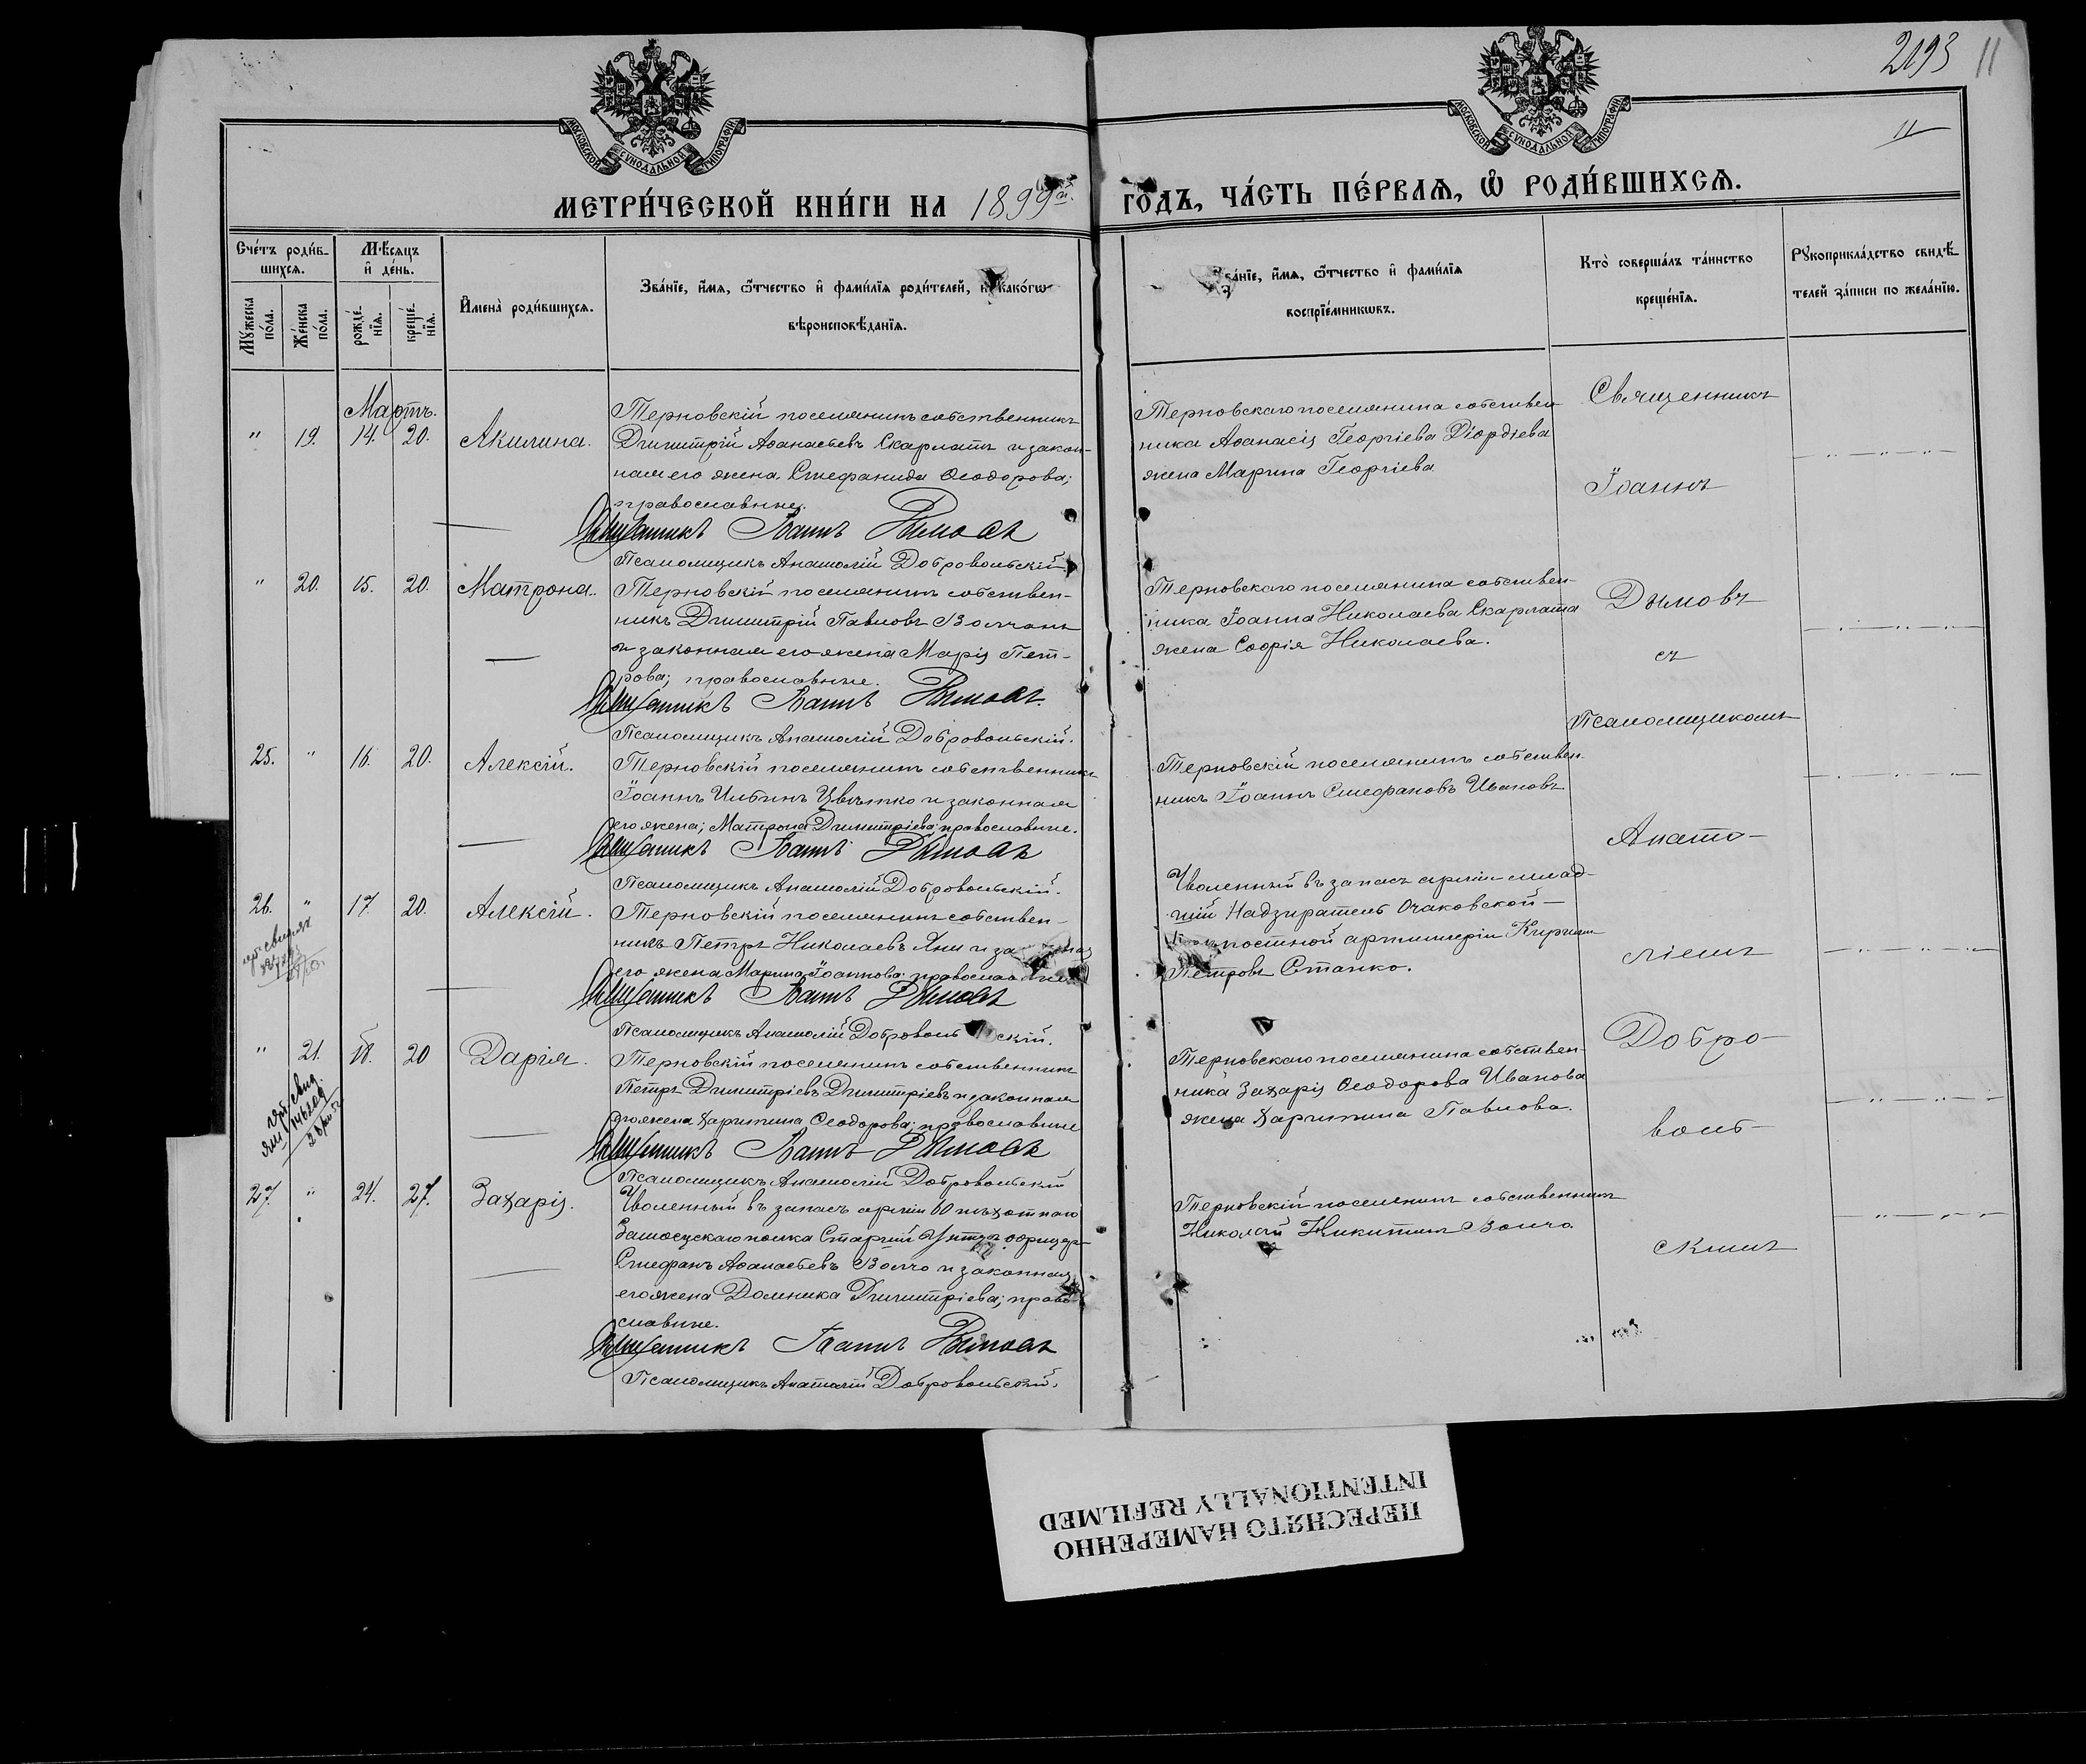 2193 11
11
МОСКОВСКОЙ СѴНОДАЛЬНОЙ ТИПОГРАФІИ
МОСКОВСКОЙ СѴНОДАЛЬНОЙ ТИПОГРАФІИ
МЕТРИ́ЧЕСКОЙ КНИ́ГИ НА 1899й. ГОДЪ, ЧА́СТЬ ПЕ́РВАѦ, Ѽ РОДИ́ВШИХСѦ.
Сче́тъ роди́в-
шихсѧ.
Мꙋжеска по́ла.
Же́нска по́ла.
Мѣ́сѧцъ
и҆ де́нь.
рожде́-
нїѧ.
креще́-
нїѧ.
И҆мена̀ роди́вшихсѧ.
Зва́нїе, и҆́мѧ, ѻ҆́тчество и҆ фами́лїѧ роди́телей, и҆ како́гѡ
вѣроисповѣ́данїѧ.
зва́нїе, и҆́мѧ, ѻ҆́тчество и҆ фами́лїѧ
воспрїе́мникѡвъ.
Кто̀ соверша́лъ та́инство
креще́нїѧ.
Рꙋкоприкла́дство свидѣ́-
телей за́писи по жела́нїю.
Мартъ.
" 19. 14. 20. Акилина.
Терновскій поселянинъ собственникъ
Димитрій Аѳанасьевъ Скарлатъ и закон-
ная его жена Стефанида Ѳеодорова;
православные.
Священникъ Іоаннъ Дымовъ
Псаломщикъ Анатолій Добровольскій.
Терновскаго поселянина собствен-
ника Аѳанасія Георгіева Діордіева
жена Марина Георгіева
" 20. 15. 20. Матрона.
Терновскій поселянинъ собствен-
никъ Димитрій Павловъ Волчанъ
и законная его жена Марія Пет-
рова; православные.
Священникъ Іоаннъ Дымовъ.
Псаломщикъ Анатолій Добровольскій.
Терновскаго поселянина собствен-
ника Іоанна Николаева Скарлата
жена Софія Николаева.
25. " 16. 20. Алексій.
Терновскій поселянинъ собственникъ
Іоаннъ Ильинъ Цвѣтко и законная
его жена; Матрона Димитріева; православные.
Священникъ Іоаннъ Дымовъ
Псаломщикъ Анатолій Добровольскій.
Терновскій поселянинъ собствен-
никъ Іоаннъ Стефановъ Ивановъ
26. " 17. 20. Алексій.
Терновскій поселянинъ собствен-
никъ Петръ Николаевъ Яни и
его жена Марина Іоаннова
Священникъ Іоаннъ Дымовъ
Псаломщикъ Анатолій Добровольскій.
Уволенный въ запасъ арміи млад-
шій Надзиратель Очаковской
крѣпостной артиллеріи Кириллъ
Петровъ Станко.
" 21. 18. 20 Дарія.
Терновскій поселянинъ собственникъ
Петръ Димитріевъ Димитріевъ и законная
его жена Харитина Ѳеодорова; православные
Священникъ Іоаннъ Дымовъ
Псаломщикъ Анатолій Добровольскій
Терновскаго поселянина собствен-
ника Захарія Ѳеодорова Иванова
жена Харитина Павлова.
27. " 24. 27. Захарія.
Уволенный въ запасъ арміи 60 пѣхотнаго
Замосцскаго полка Старшій Унтеръ офицеръ
Стефанъ Аѳанасьевъ Волчо и законная
его жена Домника Димитріева; право-
славные.
Священникъ Іоаннъ Дымовъ
Псаломщикъ Анатолій Добровольскій.
Терновскій поселянинъ собственникъ
Николай Никитинъ Волчо
Священникъ
Іоаннъ
Дымовъ
съ
Псаломщикомъ
Анато-
ліемъ
Добро-
воль-
скимъ
ПЕРЕСНЯТО НАМЕРЕННО
INTENTIONALLY REFILMED